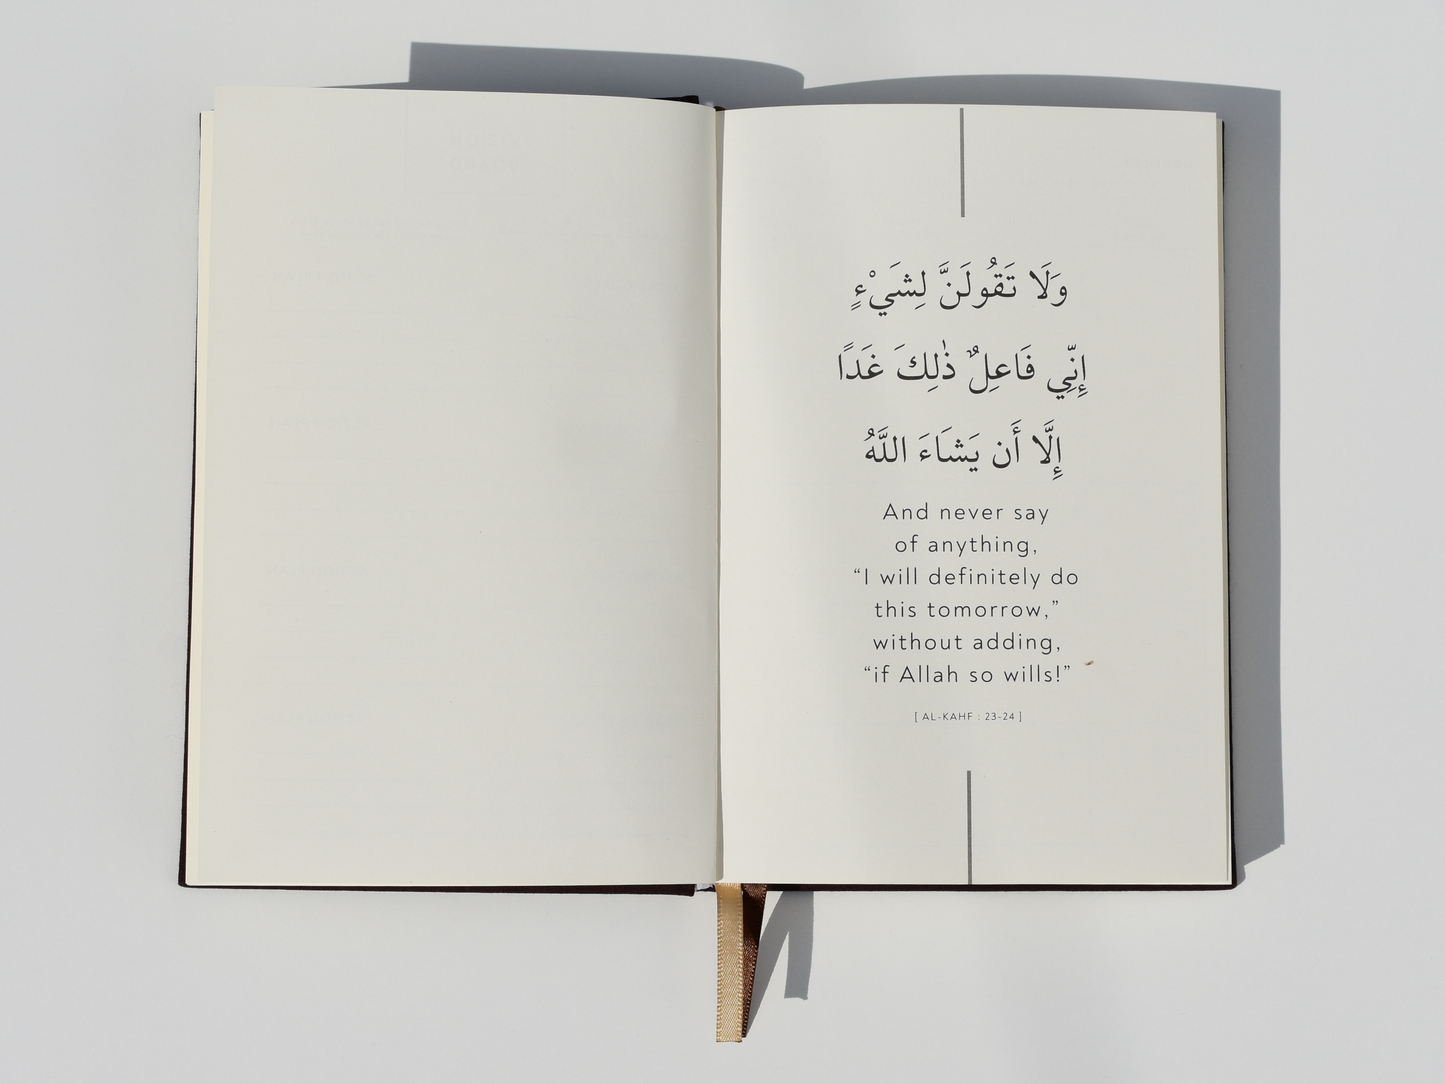 وَلَا تَقُولَنَّ لِشَيْءٍ
إِنِّي فَاعِلٌ ذَٰلِكَ غَدًا
إِلَّا أَن يَشَاءَ اللَّهُ
And never say
of anything,
“I will definitely do
this tomorrow,”
without adding,
“if Allah so wills!”
[ AL-KAHF : 23-24 ]